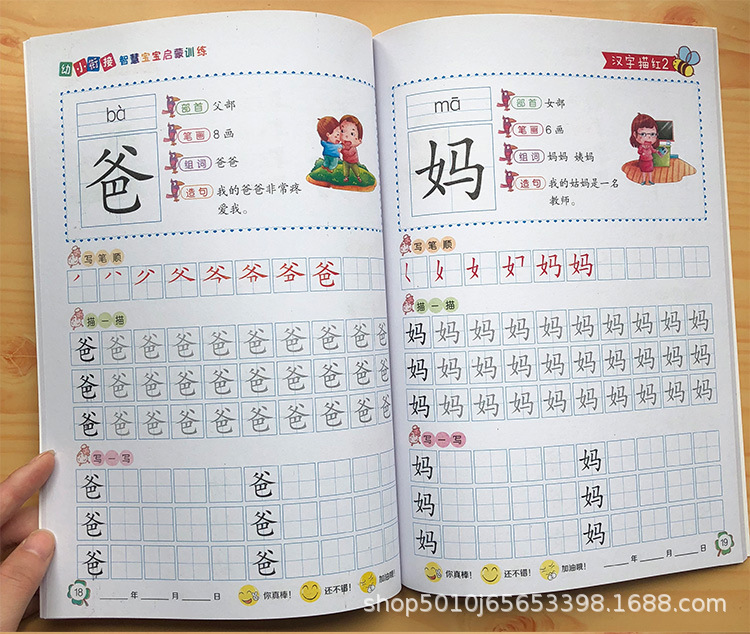 幼小衔接 智慧宝宝启蒙训练
bà
爸
部首 父部
笔画 8画
组词 爸爸
造句 我的爸爸非常疼
爱我。
写笔顺
丿 八 父 爸
描一描
爸 爸 爸 爸 爸 爸 爸 爸 爸 爸
爸 爸 爸 爸 爸 爸 爸 爸 爸 爸
爸 爸 爸 爸 爸 爸 爸 爸 爸 爸
写一写
爸 爸
爸 爸
爸 爸
18 ____年____月____日 你真棒! 还不错! 加油哦!
汉字描红2
mā
妈
部首 女部
笔画 6画
组词 妈妈 姨妈
造句 我的姑妈是一名
教师。
写笔顺
女 妈 妈
描一描
妈 妈 妈 妈 妈 妈 妈 妈 妈 妈
妈 妈 妈 妈 妈 妈 妈 妈 妈 妈
妈 妈 妈 妈 妈 妈 妈 妈 妈 妈
写一写
妈 妈
妈 妈
妈 妈
你真棒! 还不错! 加油哦! ____年____月____日 19
shop5010j65653398.1688.com